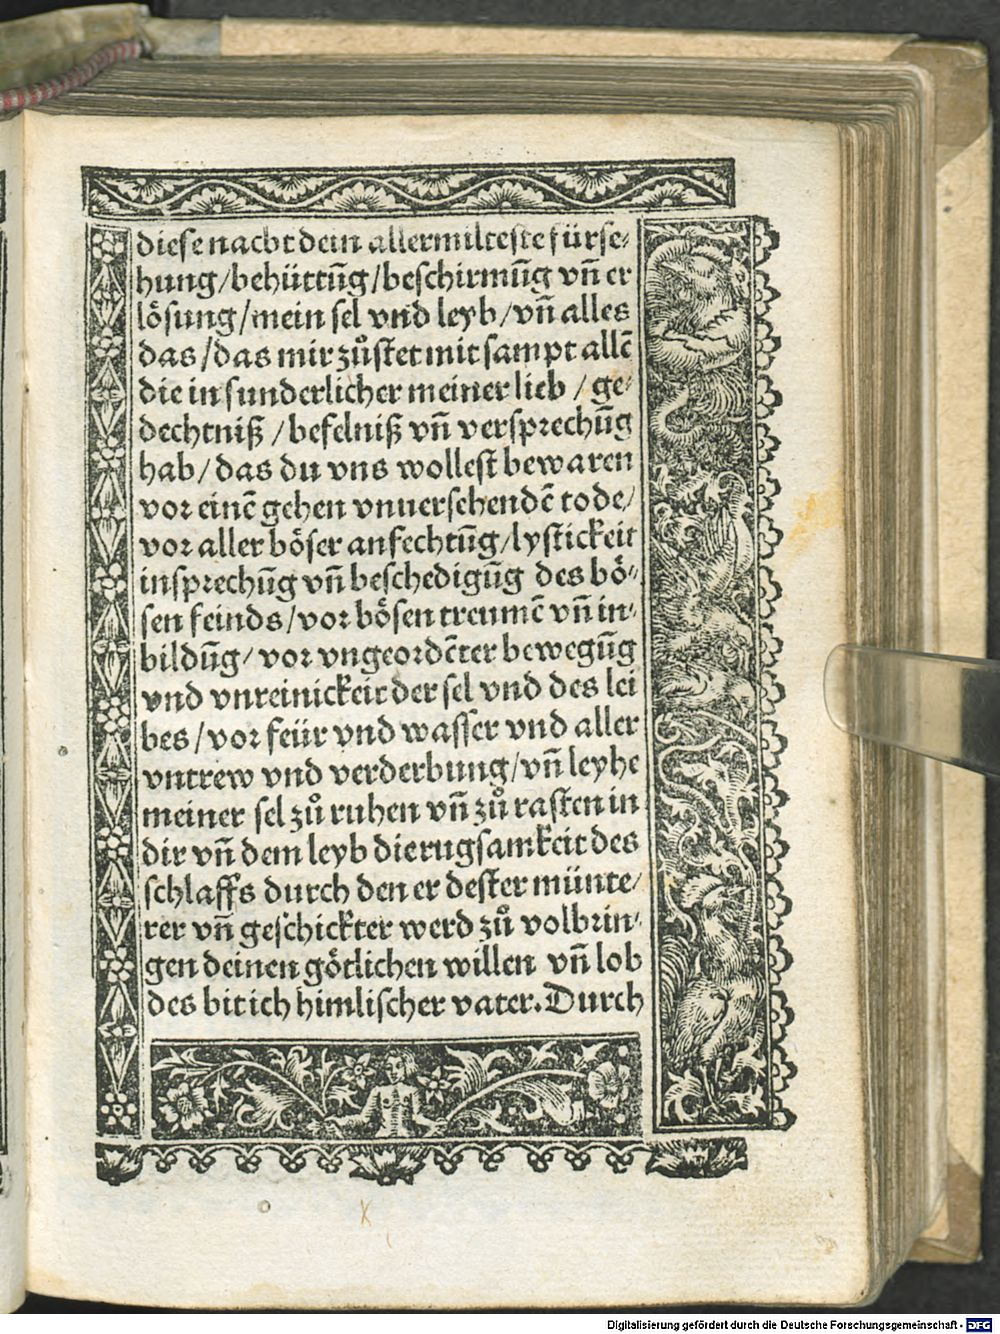 diese nacht dein allermilteste fürse⸗
hung/behüttūg/beschirmūg vn̄ er
lösung/mein sel vnd leyb/vn̄ alles
das/das mir zůstet mit sampt allē
die in sunderlicher meiner lieb/ge⸗
dechtniß/befelniß vn̄ versprechūg
hab/das du vns wollest bewaren
vor einē gehen vnuersehendē tode/
vor aller böser anfechtūg/lystickeit
insprechūg vn̄ beschedigūg des bö⸗
sen feinds/vor bösen treumē vn̄ in⸗
bildūg/vor vngeordēter bewegūg
vnd vnreinickeit der sel vnd des lei
bes/vor feür vnd wasser vnd aller
vntrew vnd verderbung/vn̄ leyhe
meiner sel zů ruhen vn̄ zů rasten in
dir vn̄ dem leyb die rugsamkeit des
schlaffs durch den er dester münte/
rer vn̄ geschickter werd zů volbrin⸗
gen deinen götlichen willen vn̄ lob
des bit ich himlischer vater. Durch
Digitalisierung gefördert durch die Deutsche Forschungsgemeinschaft - DFG